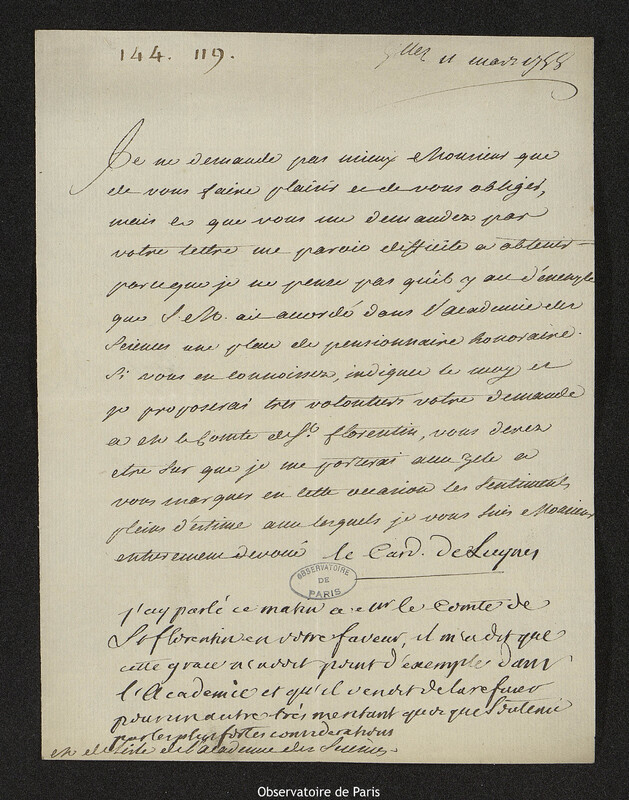 144. 119.
11 mars 1758
Je ne demande pas mieux Monsieur que
de vous faire plaisir et de vous obliger,
mais ce que vous me demandez par
votre lettre me paroit difficile a obtenir
parceque je ne pense pas qu'il y ait d'exemple
que S. M. ait accordé dans l'academie des
Sciences une place de pensionnaire honoraire.
Si vous en connoissez, indiquez le moy et
je proposerai tres volontiers votre demande
a Mr le Comte de St. florentin, vous devez
etre sur que je me porterai avec zele a
vous marquer en cette occasion les sentiments
pleins d'estime avec lesquels je vous suis Monsieur
entierement devoué le Card. de Luynes
OBSERVATOIRE DE PARIS
j'ay parlé ce matin a mr le Comte de
St florentin en votre faveur, il m'a dit que
cette grace n'avoit point d'exemple dans
l'Academie et qu'il venoit de la refuser
pour un autre très meritant quoique Soutenu
par les plus fortes considerations
Mr de Lisle de l'academie des Sciences.
Observatoire de Paris